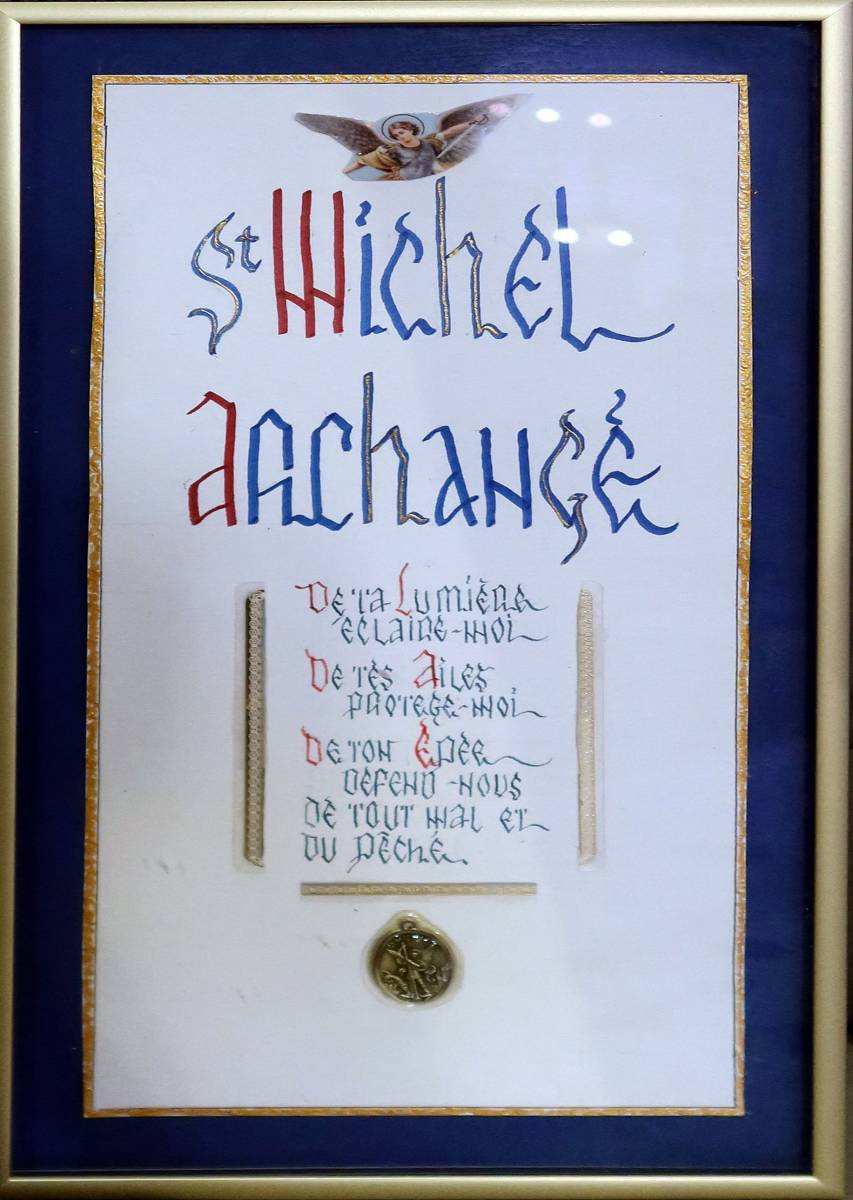 St Michel
Archange
De ta Lumière
éclaire-moi
De tes Ailes
protege-moi
De ton Épée
défend-nous
de tout mal et
du pêché